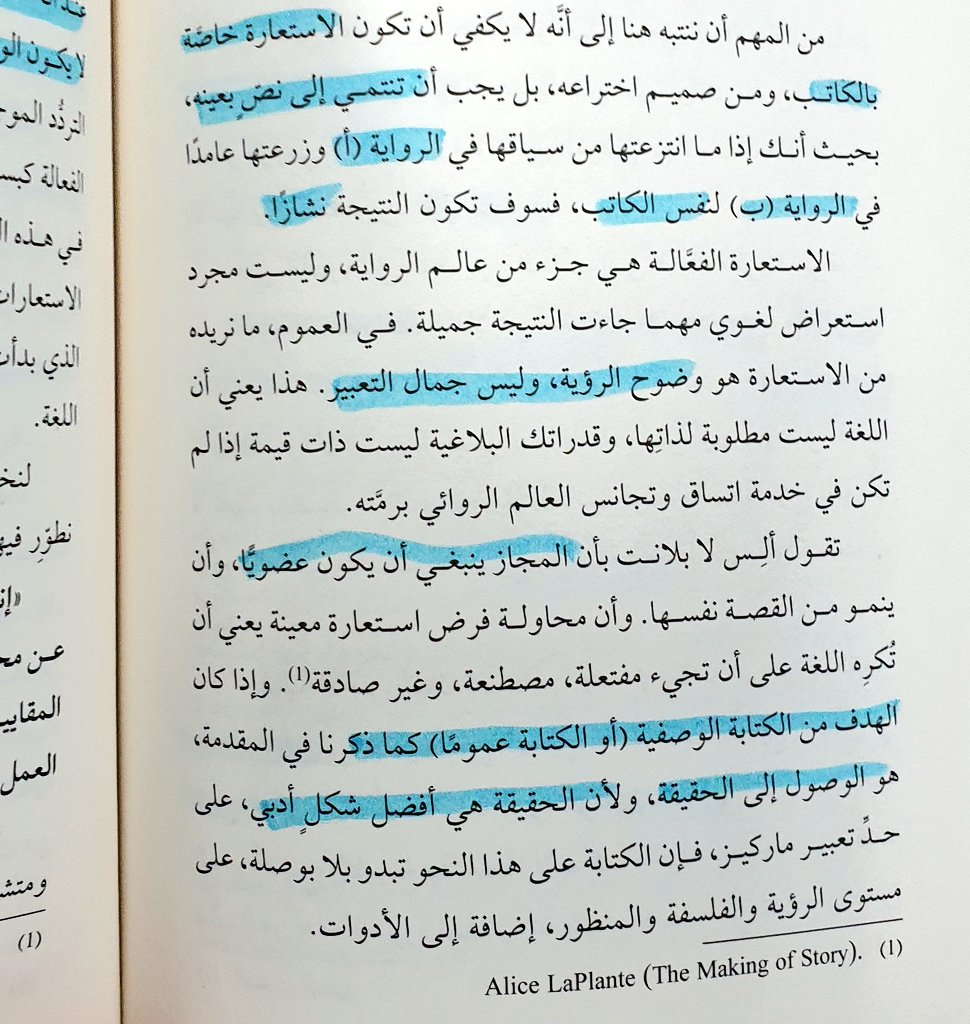 من المهم أن ننتبه هنا إلى أنَّه لا يكفي أن تكون الاستعارة خاصَّة
بالكاتب، ومن صميم اختراعه، بل يجب أن تنتمي إلى نصّ بعينه،
بحيث أنك إذا ما انتزعتها من سياقها في الرواية (أ) وزرعتها عامدًا
في الرواية (ب) لنفس الكاتب، فسوف تكون النتيجة نشازًا.
الاستعارة الفعَّالة هي جزء من عالم الرواية، وليست مجرد
استعراض لغوي مهما جاءت النتيجة جميلة. في العموم، ما نريده
من الاستعارة هو وضوح الرؤية، وليس جمال التعبير. هذا يعني أن
اللغة ليست مطلوبة لذاتِها، وقدراتك البلاغية ليست ذات قيمة إذا لم
تكن في خدمة اتساق وتجانس العالم الروائي برمَّته.
تقول ألِس لا بلانت بأن المجاز ينبغي أن يكون عضويًّا، وأن
ينمو من القصة نفسها. وأن محاولة فرض استعارة معينة يعني أن
تُكرِه اللغة على أن تجيء مفتعلة، مصطنعة، وغير صادقة(1). وإذا كان
الهدف من الكتابة الوصفية (أو الكتابة عمومًا) كما ذكرنا في المقدمة،
هو الوصول إلى الحقيقة، ولأن الحقيقة هي أفضل شكلٍ أدبي، على
حدِّ تعبير ماركيز، فإن الكتابة على هذا النحو تبدو بلا بوصلة، على
مستوى الرؤية والفلسفة والمنظور، إضافة إلى الأدوات.
(1) Alice LaPlante (The Making of Story).
لا يكون
التردُّد
الفعالة
في هذه
الاستعارات
الذي بدأت
اللغة.
نطوِّر
عن
العمل
(1)